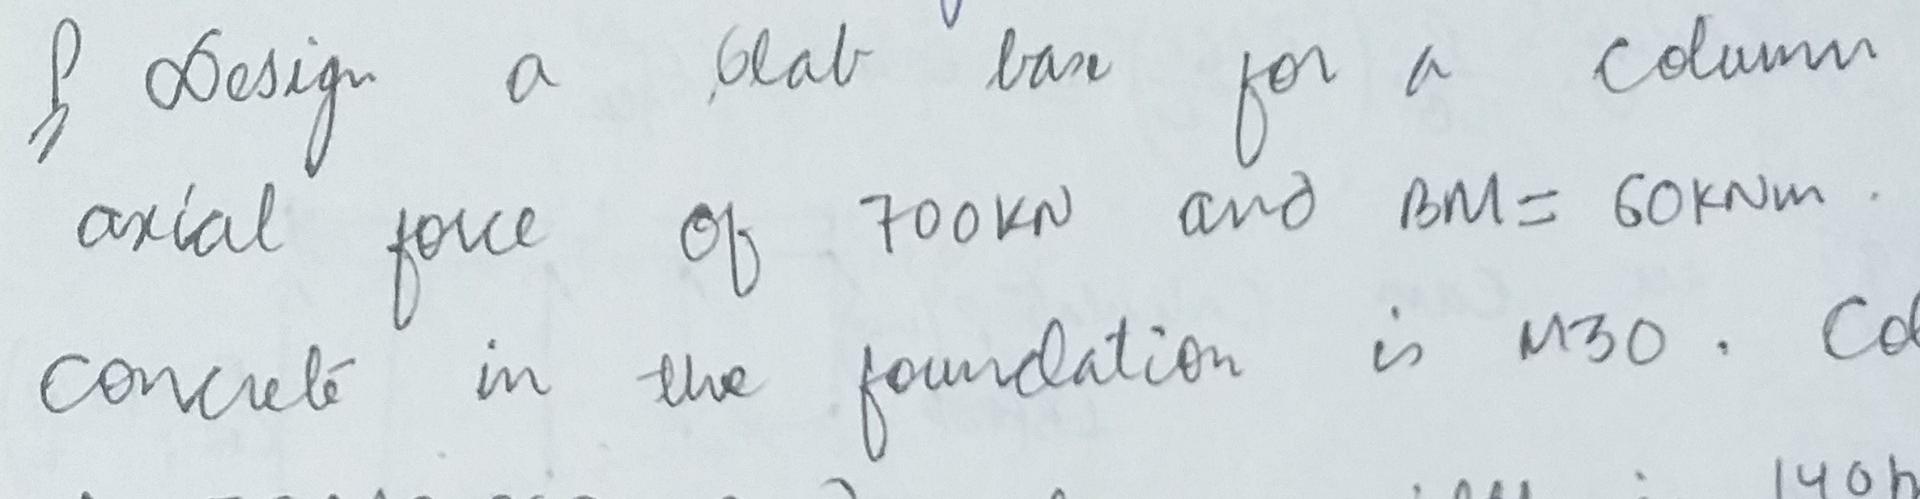 Design a slab base for a column
axial force of 700KN and BM = 60KNm.
concrete in the foundation is M30. Col
140